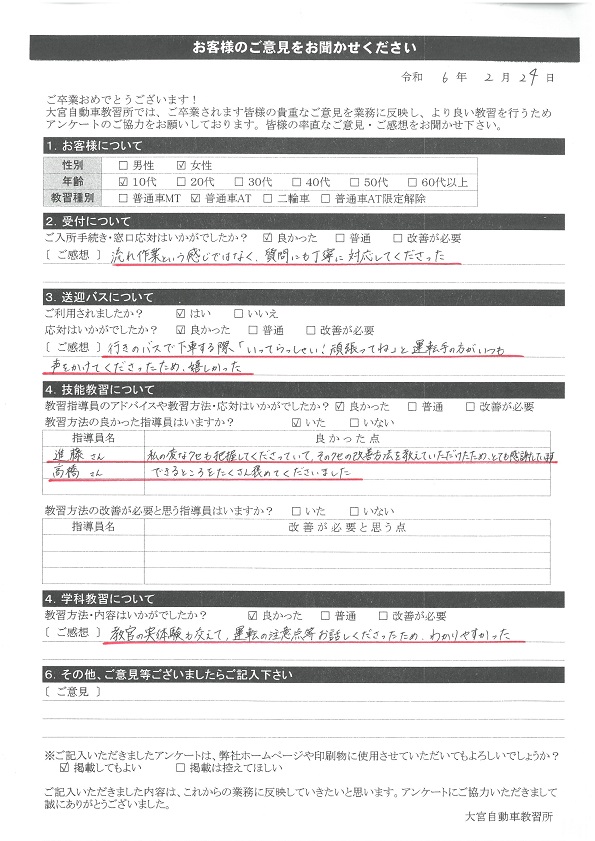 お客様のご意見をお聞かせください
令和 6 年 2 月 24 日
ご卒業おめでとうございます！
大宮自動車教習所では、ご卒業されます皆様の貴重なご意見を業務に反映し、より良い教習を行うため
アンケートのご協力をお願いしております。皆様の率直なご意見・ご感想をお聞かせ下さい。
1. お客様について
性別 □ 男性 ☑ 女性
年齢 ☑ 10代 □ 20代 □ 30代 □ 40代 □ 50代 □ 60代以上
教習種別 □ 普通車MT ☑ 普通車AT □ 二輪車 □ 普通車AT限定解除
2. 受付について
ご入所手続き・窓口応対はいかがでしたか？ ☑ 良かった □ 普通 □ 改善が必要
［ ご感想 ］ 流れ作業という感じではなく、質問にも丁寧に対応してくださった
3. 送迎バスについて
ご利用されましたか？ ☑ はい □ いいえ
応対はいかがでしたか？ ☑ 良かった □ 普通 □ 改善が必要
［ ご感想 ］ 行きのバスで下車する際、「いってらっしゃい！頑張ってね」と運転手の方がいつも
声をかけてくださったため、嬉しかった
4. 技能教習について
教習指導員のアドバイスや教習方法・応対はいかがでしたか？ ☑ 良かった □ 普通 □ 改善が必要
教習方法の良かった指導員はいますか？ ☑ いた □ いない
指導員名 良かった点
進藤 さん 私の変なクセも把握してくださっていて、そのクセの改善方法を教えていただけたため、とても感謝して
高橋 さん できるところをたくさん褒めてくださいました
教習方法の改善が必要と思う指導員はいますか？ □ いた □ いない
指導員名 改善が必要と思う点
4. 学科教習について
教習方法・内容はいかがでしたか？ ☑ 良かった □ 普通 □ 改善が必要
［ ご感想 ］ 教官の実体験も交えて、運転の注意点等お話しくださったため、わかりやすかった
6. その他、ご意見等ございましたらご記入下さい
［ ご意見 ］
※ご記入いただきましたアンケートは、弊社ホームページや印刷物に使用させていただいてもよろしいでしょうか？
☑ 掲載してもよい □ 掲載は控えてほしい
ご記入いただきました内容は、これからの業務に反映していきたいと思います。アンケートにご協力いただきまして
誠にありがとうございました。
大宮自動車教習所